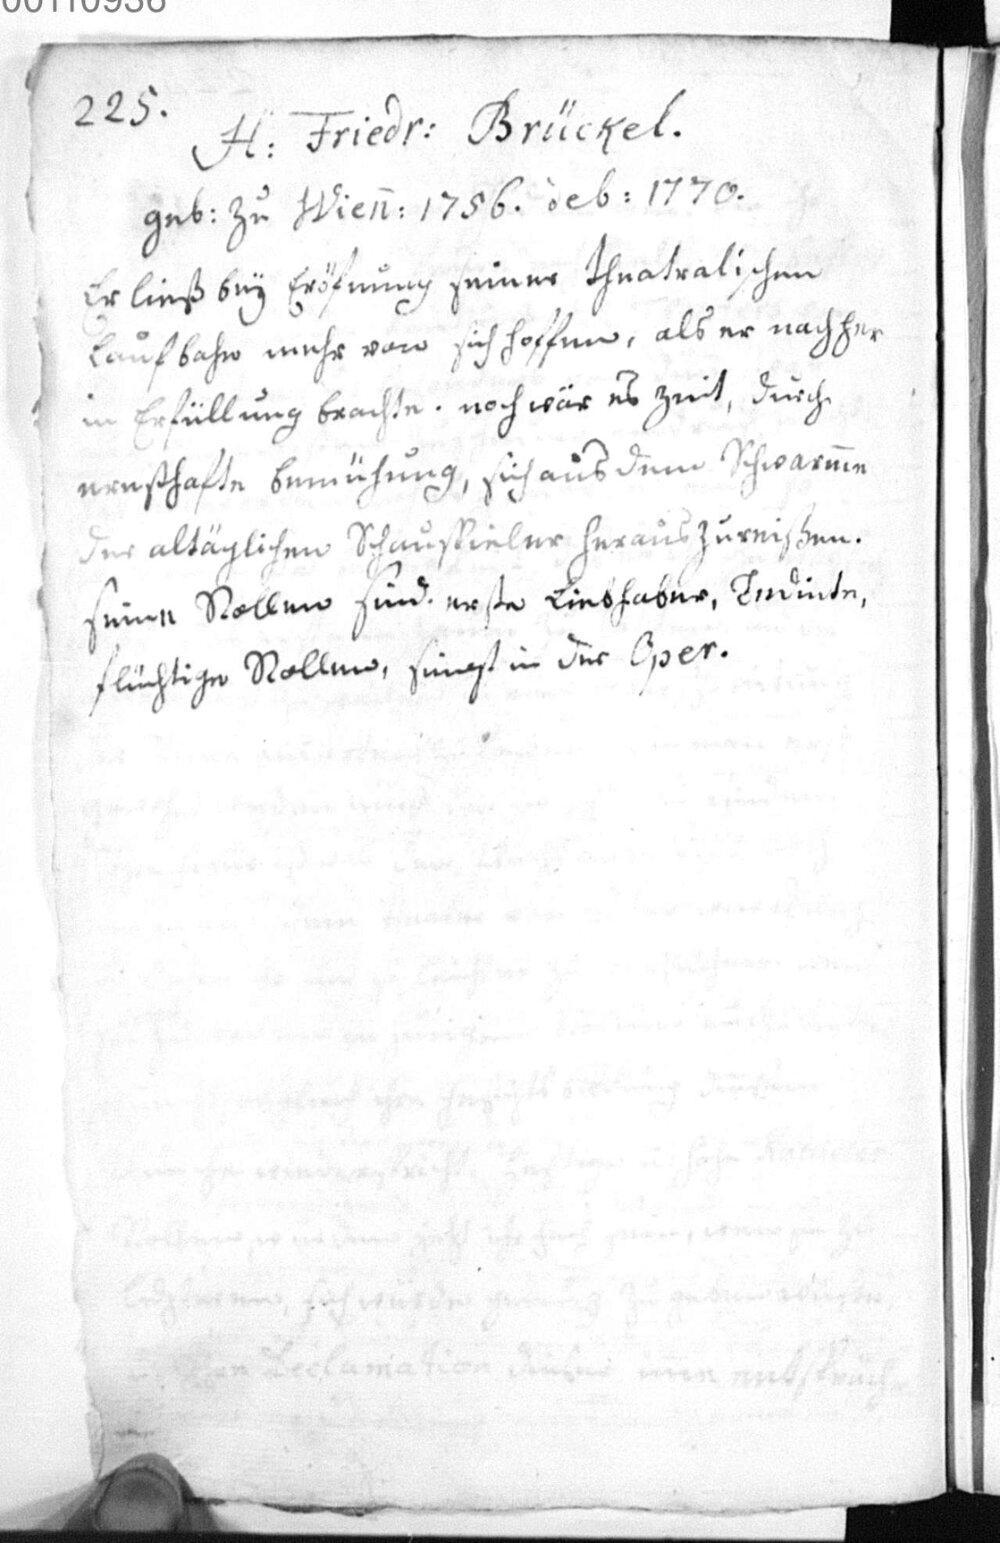 00110936
225.
H: Friedr: Brückel.
geb: zu Wien̄: 1756. deb: 1770.
Er ließ beÿ Eröfnung seiner theatralischen
Laufbahn mehr von sich hoffen, als er nachher
in Erfüllung brachte. noch wär es Zeit, durch
ernsthafte bemühung, sich aus dem Schwarm̄e
der altäglichen Schauspieler herauszureißen.
seine Rollen sind. erste Liebhaber,
flüchtige Rollen, singt in der Oper.